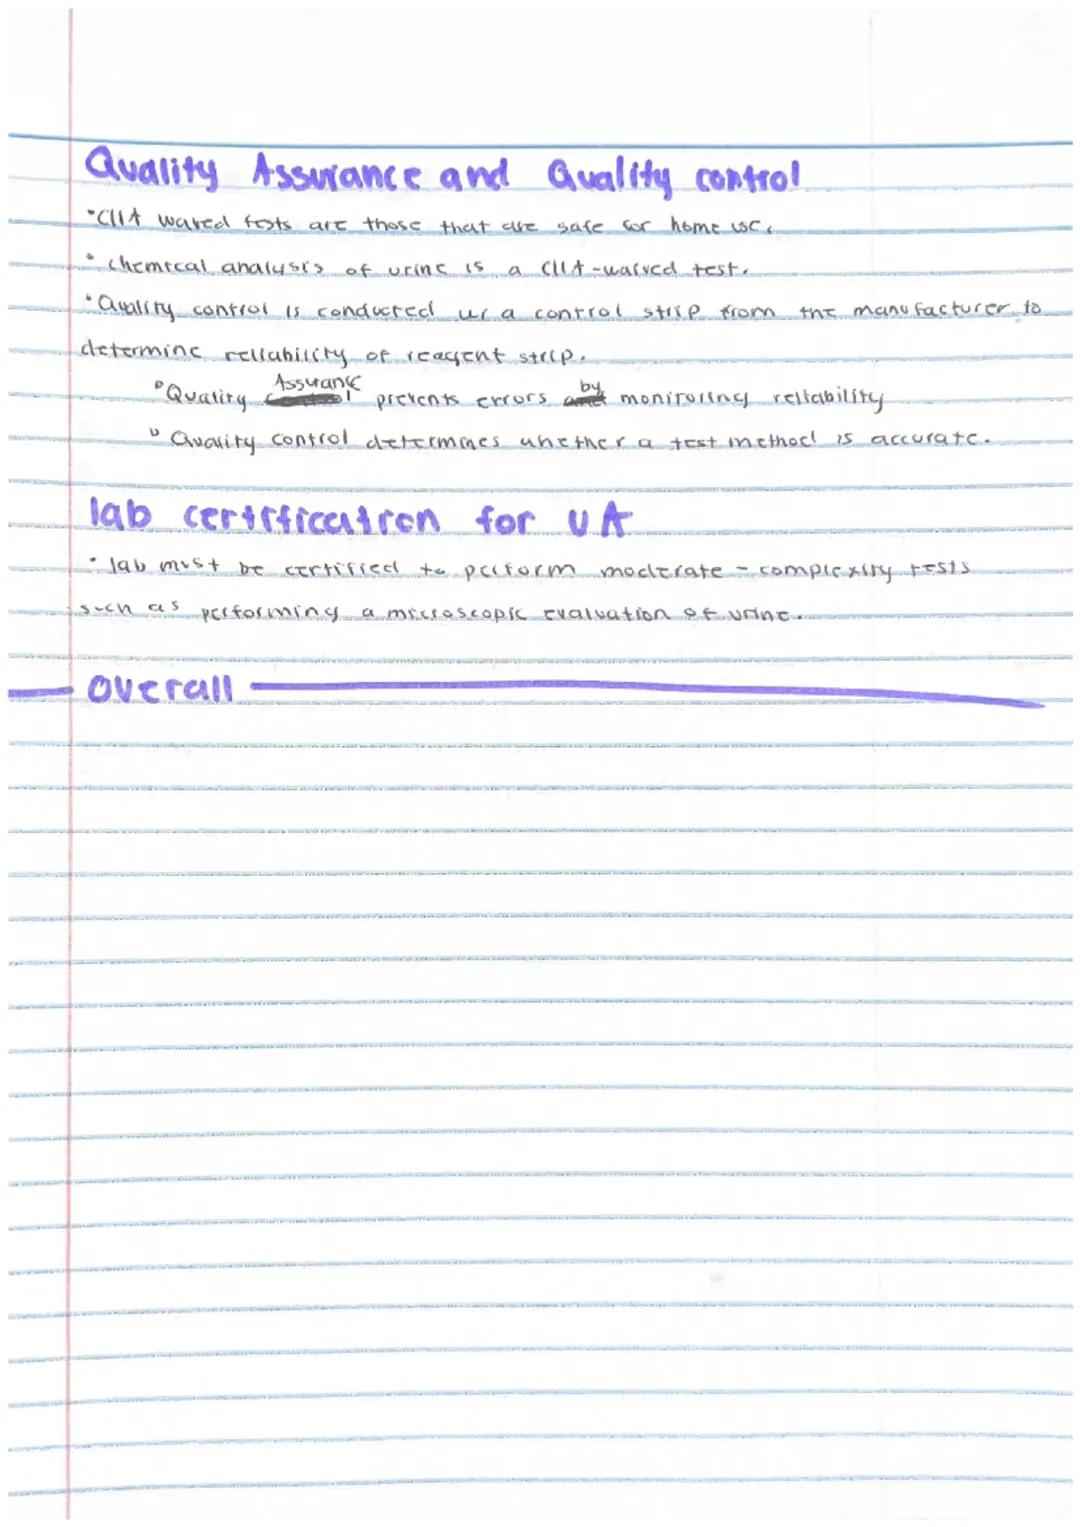 Quality Assurance and Quality control
• CLIA waved tests are those that are safe for home use.
• chemical analysis of urine is a CLIA-waived test.
• Quality control is conducted w a control strip from the manufacturer to
determine reliability of reagent strip.
° Quality Assurance prevents errors by monitoring reliability
° Quality control determines whether a test method is accurate.
lab certification for UA
• lab must be certified to perform moderate-complexity tests
such as performing a microscopic evaluation of urine.
Overall